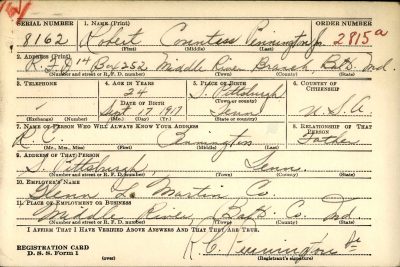 SERIAL NUMBER 1. NAME (Print) ORDER NUMBER
8162 Robert Countess Pennington Jr. 2815a
(First) (Middle) (Last)
2. ADDRESS (Print)
R.F.D 14 Box 252 Middle River Branch, Balto. Md.
(Number and street or R. F. D. number) (Town) (County) (State)
3. TELEPHONE 4. AGE IN YEARS 5. PLACE OF BIRTH 6. COUNTRY OF CITIZENSHIP
24 S. Pittsburgh
DATE OF BIRTH (Town or county)
Sept 17 1917 Tenn U.S.A
(Exchange) (Number) (Mo.) (Day) (Yr.) (State or country)
7. NAME OF PERSON WHO WILL ALWAYS KNOW YOUR ADDRESS 8. RELATIONSHIP OF THAT PERSON
R. C. Pennington Father
(Mr., Mrs., Miss) (First) (Middle) (Last)
9. ADDRESS OF THAT PERSON
S. Pittsburgh Tenn.
(Number and street or R. F. D. number) (Town) (County) (State)
10. EMPLOYER'S NAME
Glenn L. Martin Co.
11. PLACE OF EMPLOYMENT OR BUSINESS
Middle River, Balto. Co. Md
(Number and street or R. F. D. number) (Town) (County) (State)
I AFFIRM THAT I HAVE VERIFIED ABOVE ANSWERS AND THAT THEY ARE TRUE.
REGISTRATION CARD
D. S. S. Form 1 (over) R.C. Pennington Jr
(Registrant's signature)